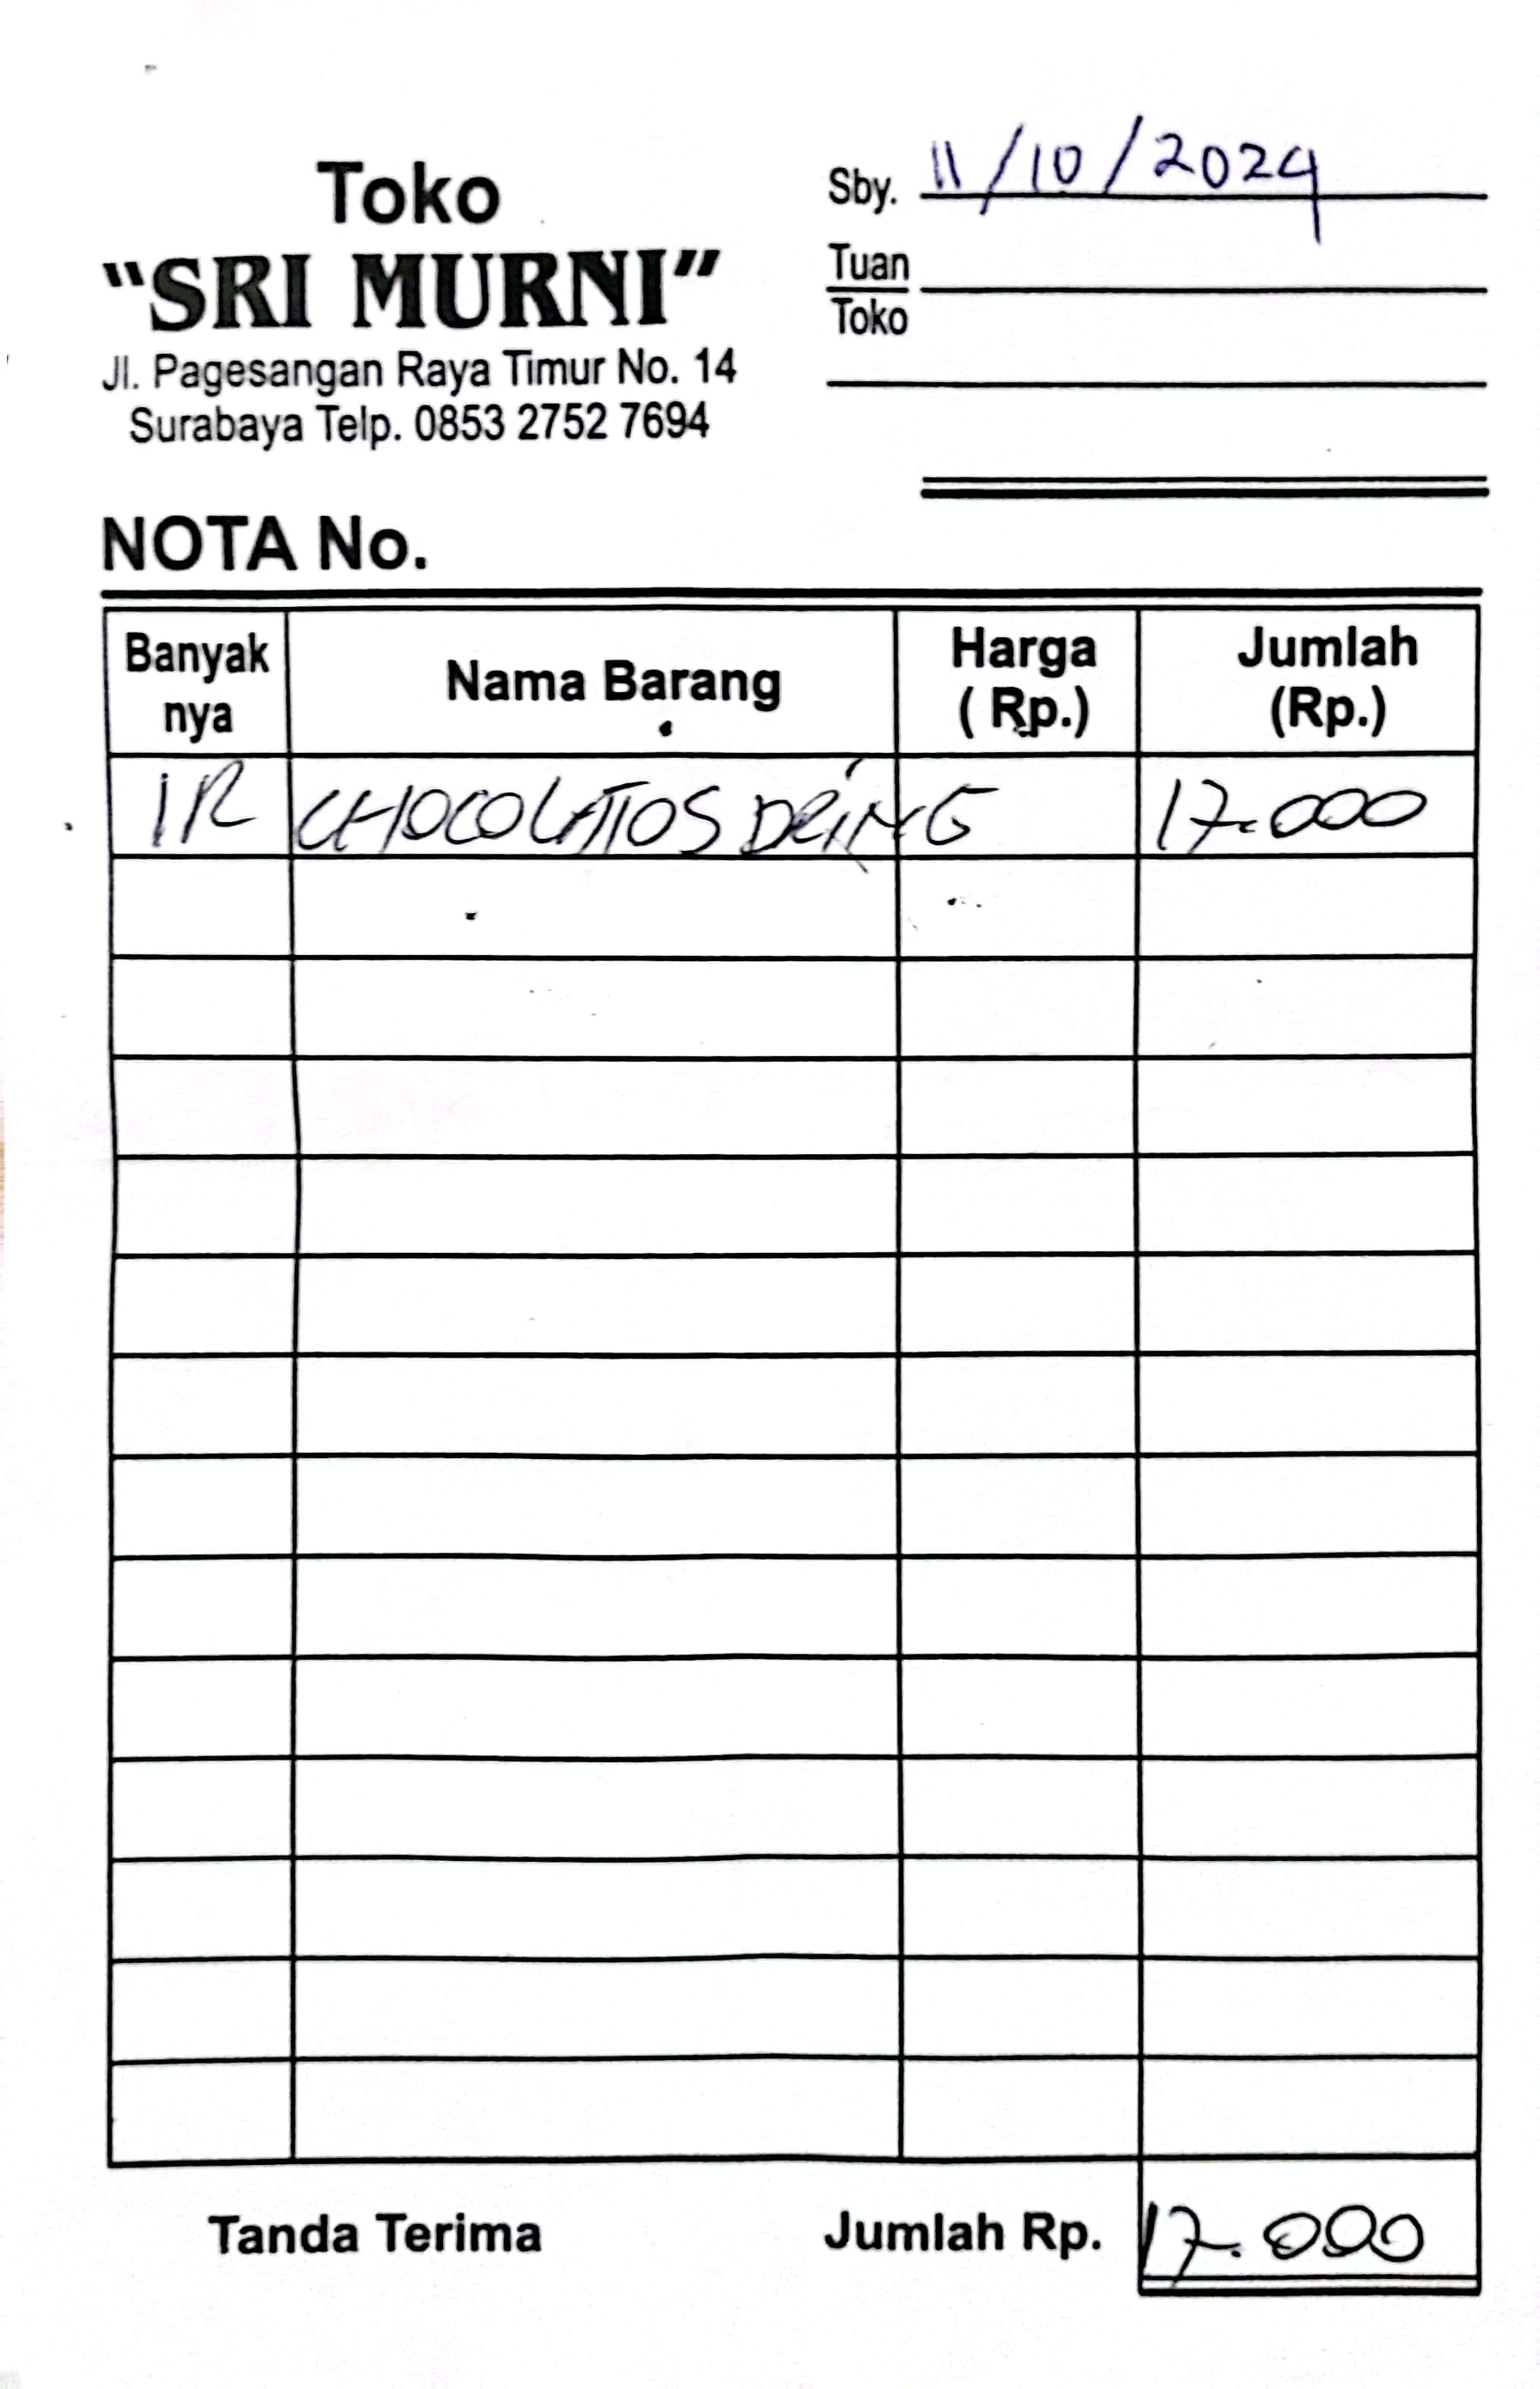 Toko
"SRI MURNI"
Jl. Pagesangan Raya Timur No. 14
Surabaya Telp. 0853 2752 7694
Sby. 11/10/2024
Tuan
Toko
NOTA No.
Banyak nya Nama Barang Harga (Rp.) Jumlah (Rp.)
1R CHOCOLATOS DRING 17.000
Tanda Terima Jumlah Rp. 17.000